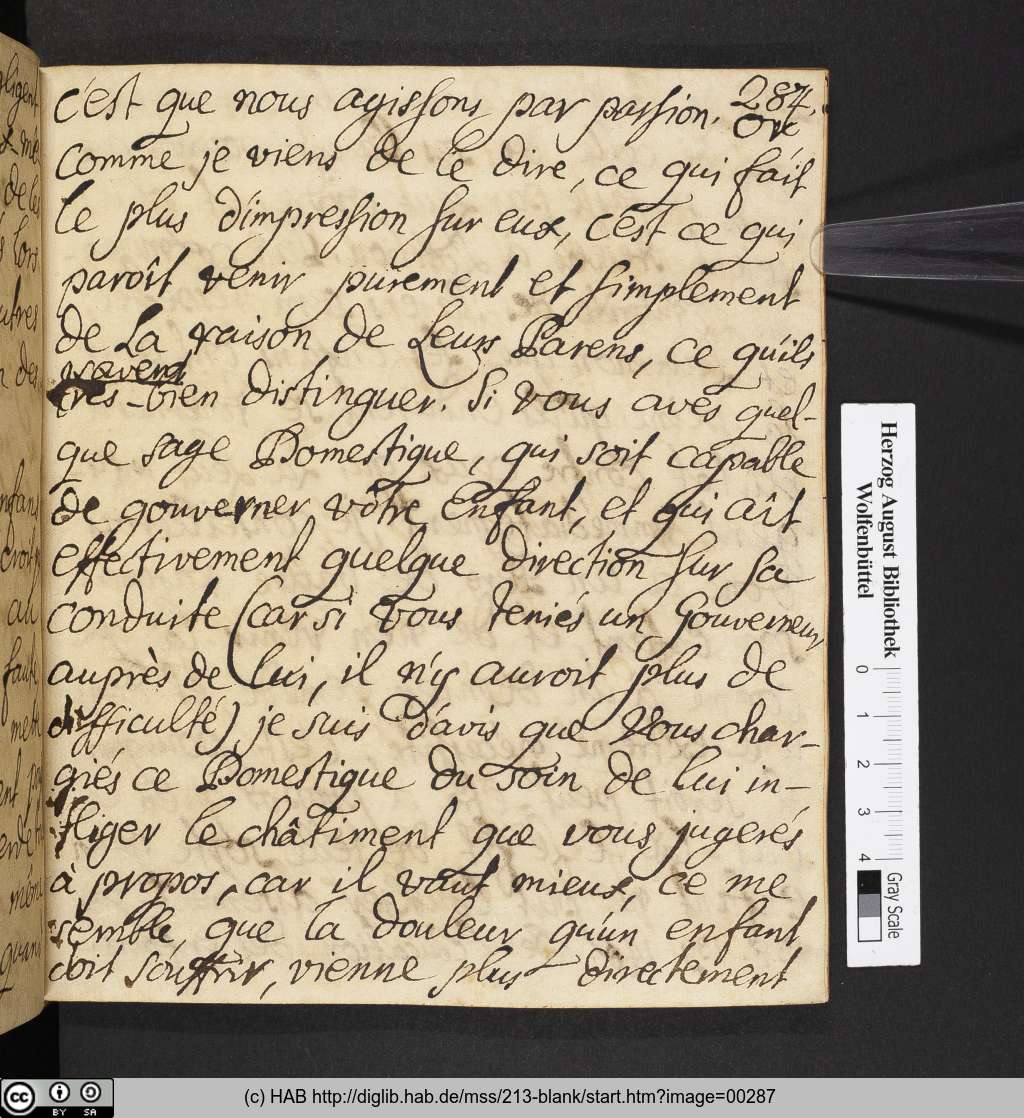 287.
c'est que nous agissons par passion. Or
comme je viens de le dire, ce qui fait
le plus d'impression sur eux, c'est ce qui
paroît venir purement et simplement
de La raison de Leurs Parens, ce qu'ils
savent
très-bien distinguer. Si vous avés quel-
que sage Domestique, qui soit capable
de gouverner vôtre Enfant, et qui aît
effectivement quelque direction sur sa
conduite (car si vous teniés un Gouverneur
auprès de lui, il n'y auroit plus de
difficulté) je suis d'avis que Vous char-
giés ce Domestique du soin de lui in-
fliger le châtiment que vous jugerés
à propos, car il vaut mieux, ce me
semble, que la douleur qu'un enfant
doit souffrir, vienne plus directement
Herzog August Bibliothek
Wolfenbüttel
0 1 2 3 4
Gray Scale
cc BY SA
(c) HAB http://diglib.hab.de/mss/213-blank/start.htm?image=00287